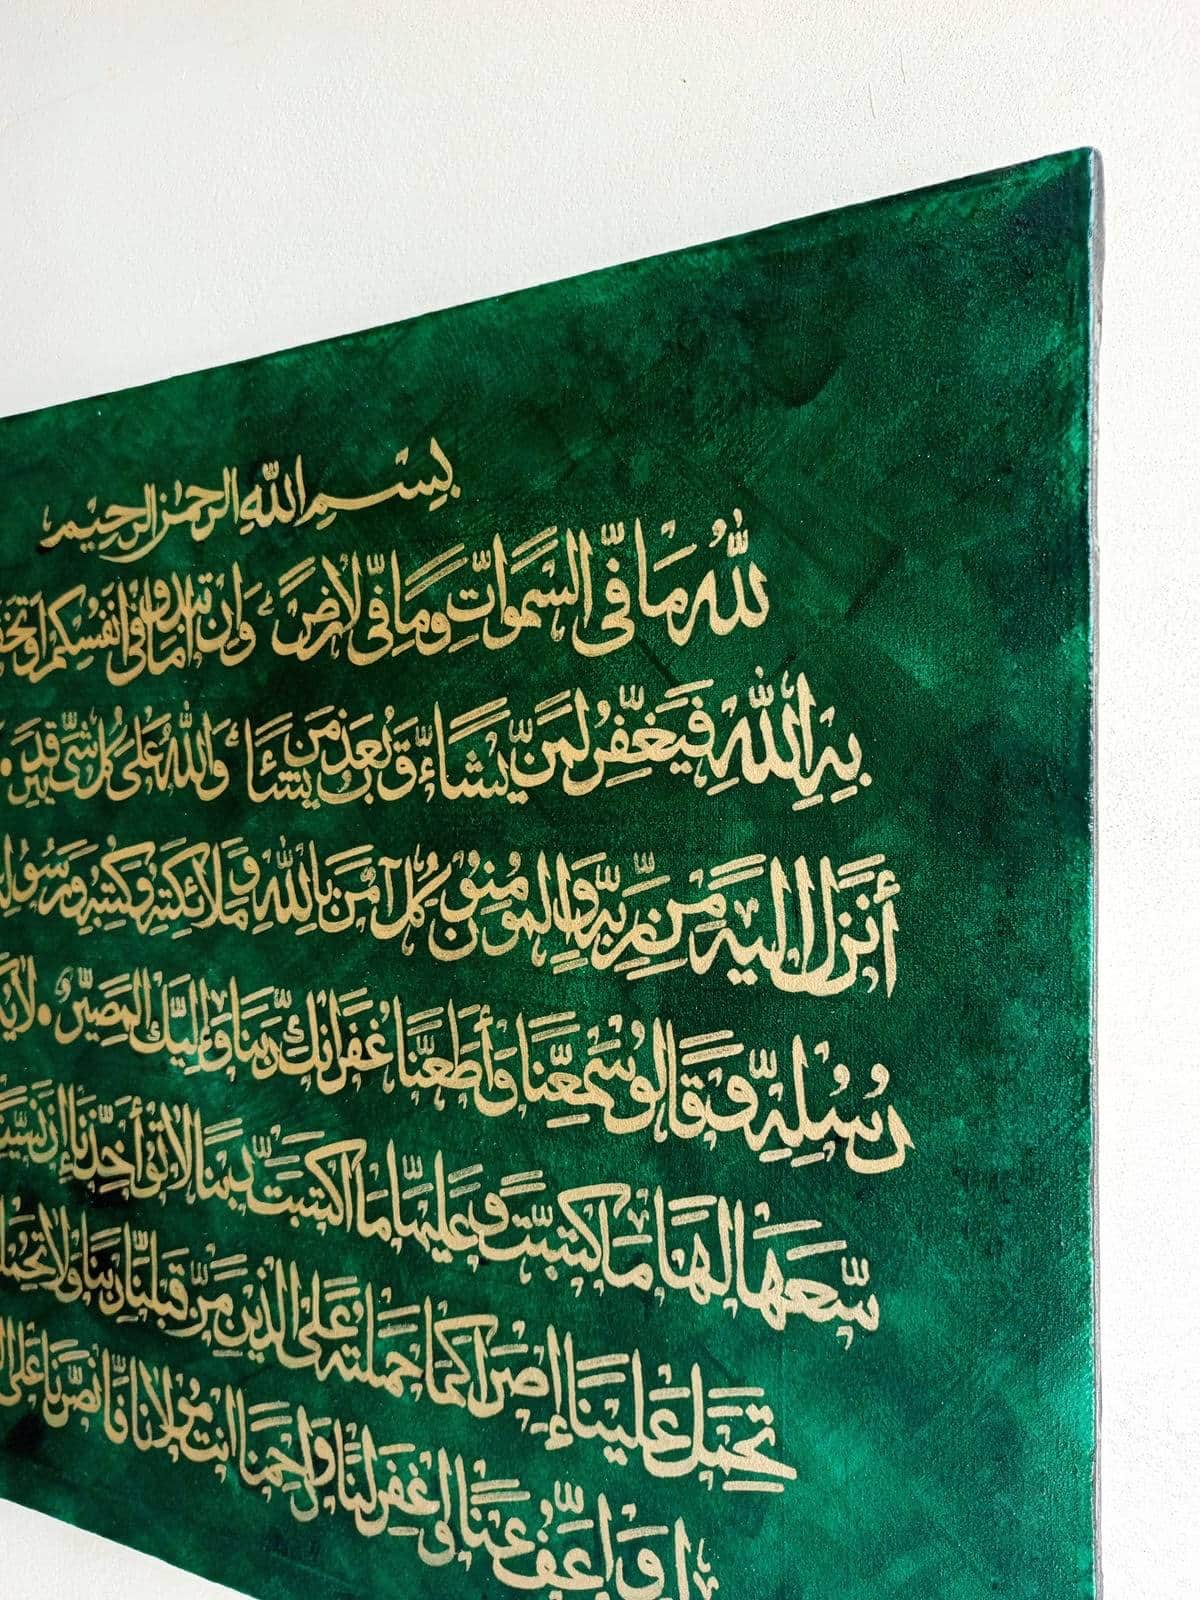 بِسْمِ اللهِ الرحمٰن الرحيم
لِلّٰهِ مَا فِي السَّمٰوَاتِ وَمَا فِي لارْضِ وَاِن تبدوا مافى انفسكم او تخف
بِهِ اللهِ فَيَغْفِرُ لِمَنْ يَشَاءُ وَ يُعَذِّبُ مَن يَشَاءُ وَاللهُ عَلى كُلِ شَىْ قَدِير
أنزَلَ اليهِ مِن رَبِّهِ وَالمومِنُون كُل آمن بِاللهِ وملائكته وكتبه ورسوله
رُسُلِهِ وَقَالو سَمِعْنَا وَأَطَعْنَا غُفرَانَكَ رَبَنَا وَإِلَيْكَ المَصِير لا
سْعَهَا لهَا مَا كسَبَتْ وَعَليهَا مَا اكتسَبَتْ ربنا لا تؤأخِذْنَا إن نَسِينَ
تَحْمِل عَلينَا إِصْرَا كمَا حَملته عَلى الذين مِنْ قبلنا ربنا ولا تحمل
وَاعفُ عَنَا وَاغفِر لَنَا وَارحَمنا انت مولانا فانصرنا على